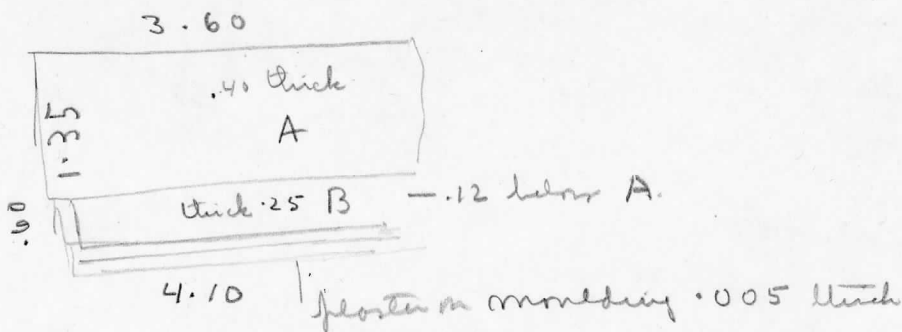 3.60
.40 thick
A
1.35
thick .25 B — .12 below A.
.90
4.10
plaster on moulding .005 thick